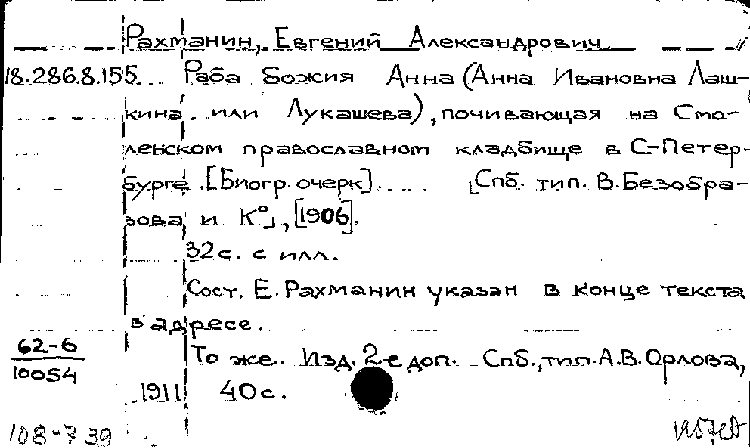 Рахманин, Евгений Александрович
18.286.8.155 Раба Божия Анна (Анна Ивановна Лаш-
кина или Лукашева), почивающая на Смо-
ленском православном кладбище в С-Петер-
бурге. [Биогр. очерк]..... [Спб. тип. В. Безобра-
зова и К°], [1906].
32 с. с илл.
Сост. Е. Рахманин указан в конце текста
в адресе.
62-6
10054
То же. Изд. 2-е доп. Спб., тип. А.В. Орлова,
1911 40 с.
108-7 39